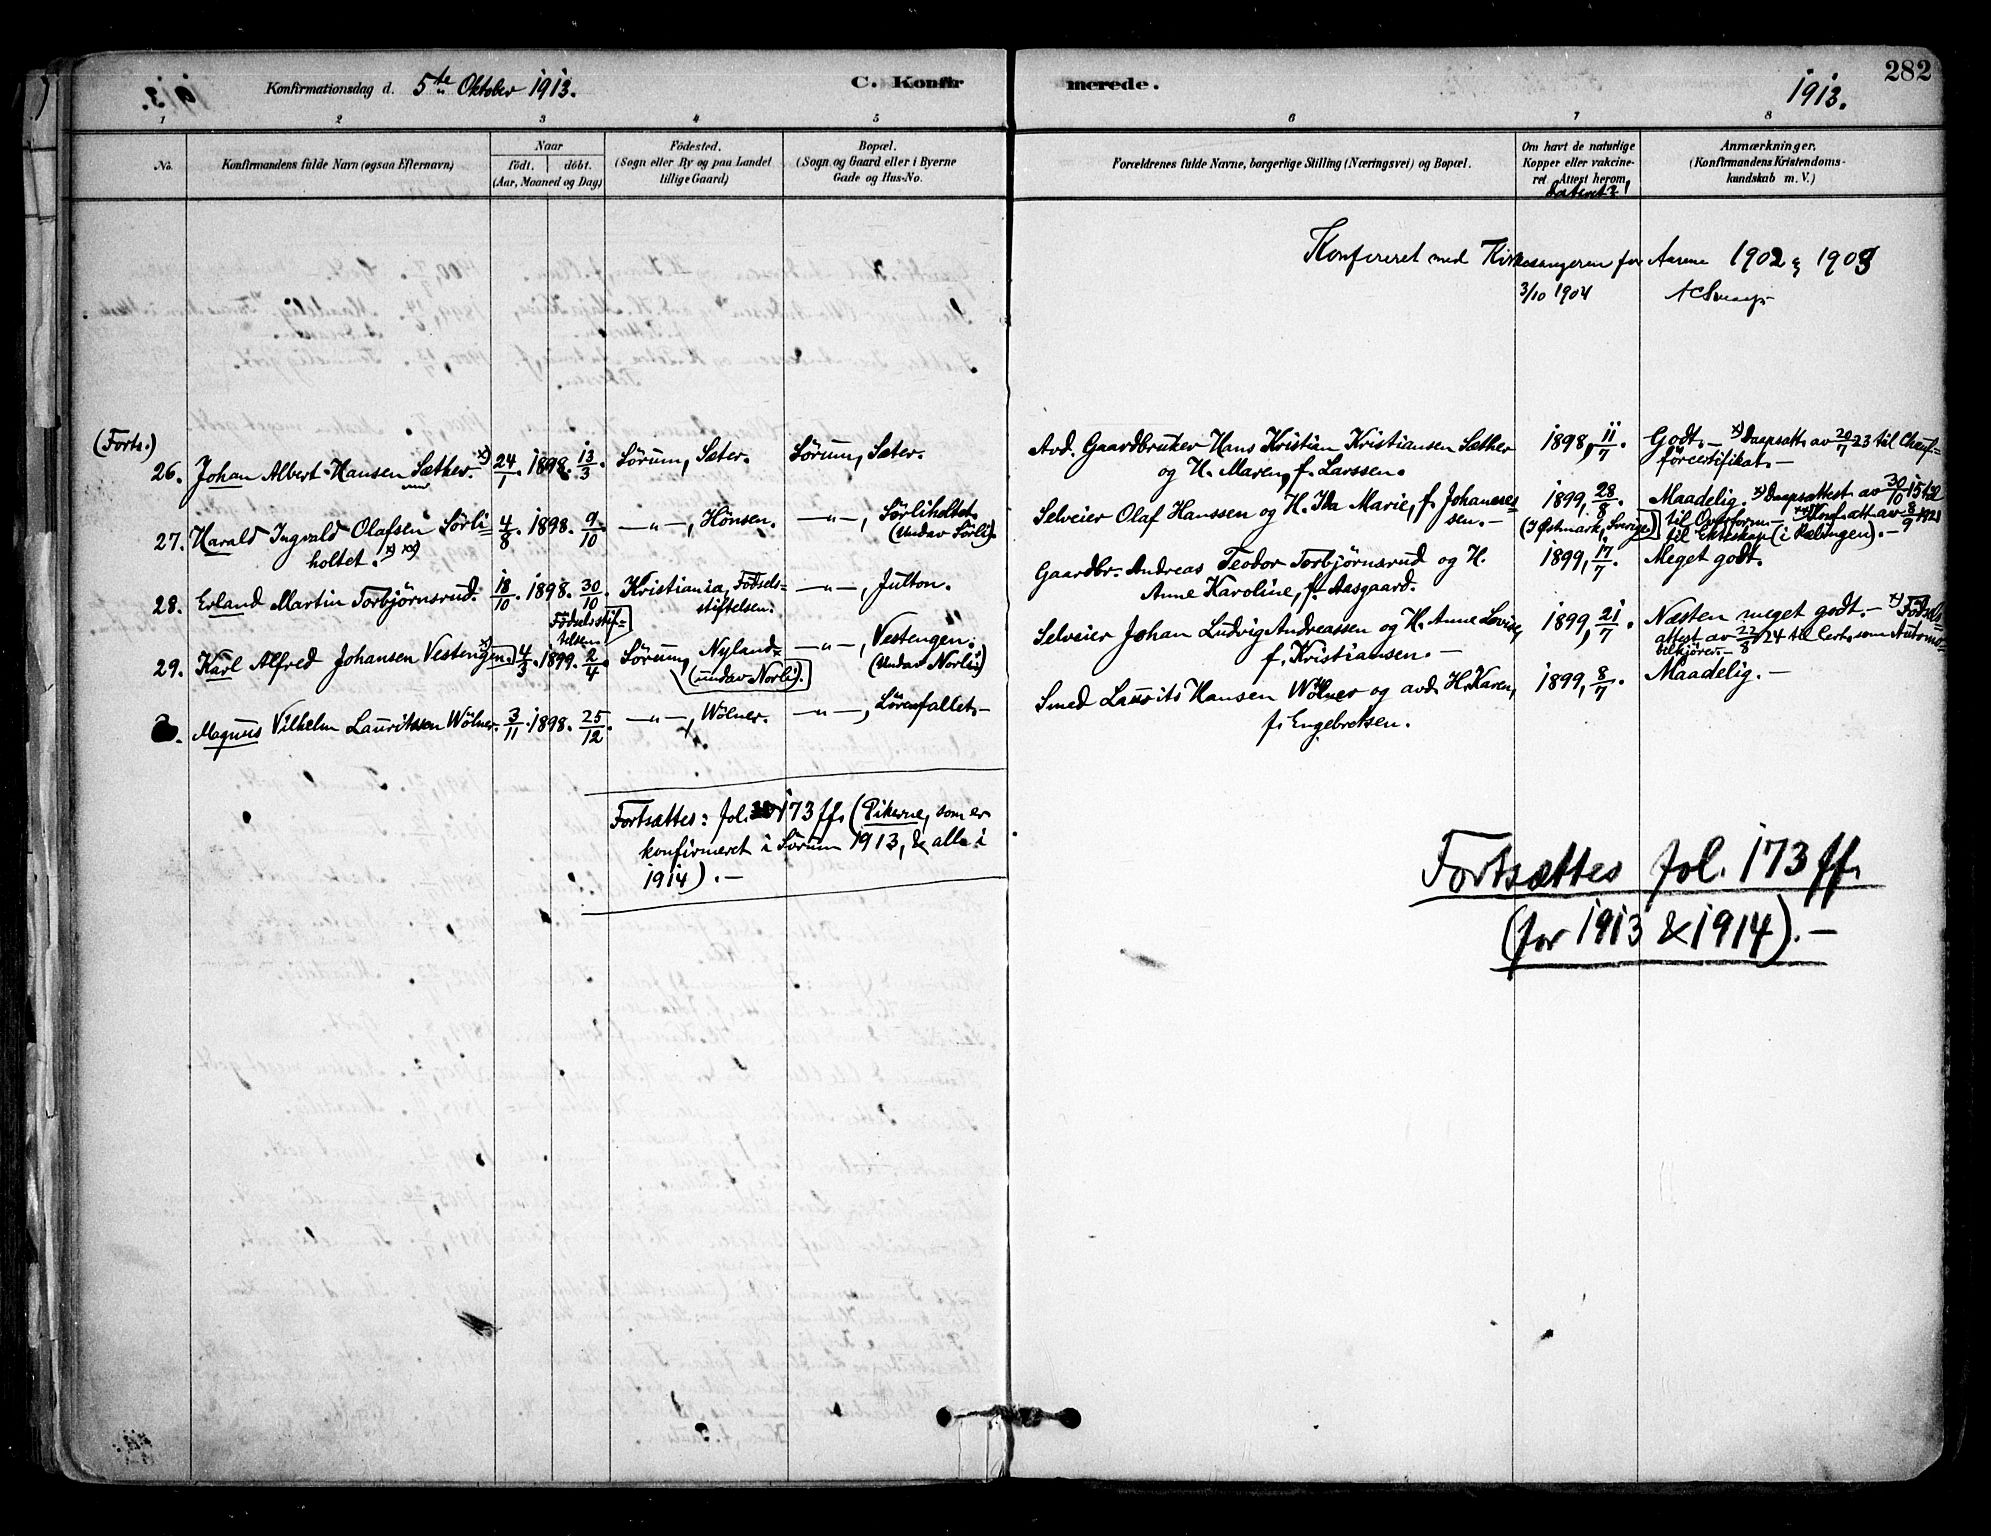 Konfirmationsdag d. 5te Oktober 1913.
C. Konfir
merede.
1913.
282
1
2
3
4
5
6
7
8
No.
Konfirmandens fulde Navn (ogsaa Efternavn)
Naar
født.
døbt.
(Aar, Maaned og Dag)
Fødested.
(Sogn eller By og paa Landet
tillige Gaard)
Bopæl.
(Sogn og Gaard eller i Byerne
Gade og Hus-No.
Forældrenes fulde Navne, borgerlige Stilling (Næringsvei) og Bopæl.
Om havt de naturlige
Kopper eller vakcine-
ret. Attest herom
dateret?!
Anmærkninger.
(Konfirmandens Kristendoms-
kundskab m. V.)
Konfereret med Kirkesangeren for Aarene 1902 & 1903
3/10 1904
(Forts.)
26. Johan Albert Hansen Sæther. x) 24/1 1898. 13/3. Sørum, Sæter. Sørum, Sæter.
Avd. Gaardbruker Hans Kristian Kristiansen Sæther
og H. Maren, f. Larssen.
1898, 11/7.
Godt. – x) Daapsatt. av 20/7 23 til Chauf-
førcertifikat. –
27. Harald Ingvald Olafsen Sörli=
holtet. x) xx)
4/8. 1898. 9/10. –"–, Hönsen. –"–, Sörliholtet
(undav Sörli).
Selveier Olaf Hanssen og H. Ida Marie, f. Johannes=
sen. –
1899, 28/8.
(i Østmark, Sverige)
Maadelig. x) Daapsattest av 30/10 15 til
til Overform. – xx) Konf. att. av 8/9 1921
til Ekteskap (i Rælingen). –
28. Erland Martin Torbjörnsrud. 18/10. 1898. 30/10. Kristiania, Födsels=
stiftelsen. –"–, Julton.
Gaardbr. Andreas Teodor Torbjørnsrud og H.
Anne Karoline, f. Aasgaard.
1899, 17/7.
Meget godt.
Födselsstif=
telsen.
29. Karl Alfred Johansen Vestengen. x) 4/3. 1899. 2/4. Sørum, Nyland
(undav Norli). –"–, Vestengen.
(undav Norli)
Selveier Johan Ludvig Andreassen og H. Anne Lovise,
f. Kristiansen. –
1899, 21/7.
Næsten meget godt. – x) Födsels=
attest av 22/8 24 til Cert. som Automo=
bilkjører. –
Magnus Vilhelm Lauritsen Wölner. 3/11. 1898. 25/12. –"–, Wölner. –"–, Lörenfallet. –
Smed Laurits Hansen Wölner og avd. H. Karen,
f. Engebretsen.
1899, 8/7.
Maadelig. –
Fortsættes: fol. 173 ff. (Pikerne, som er
konfirmeret i Sørum 1913, & alle i
1914). –
Fortsættes fol. 173 ff.
(for 1913 & 1914). –